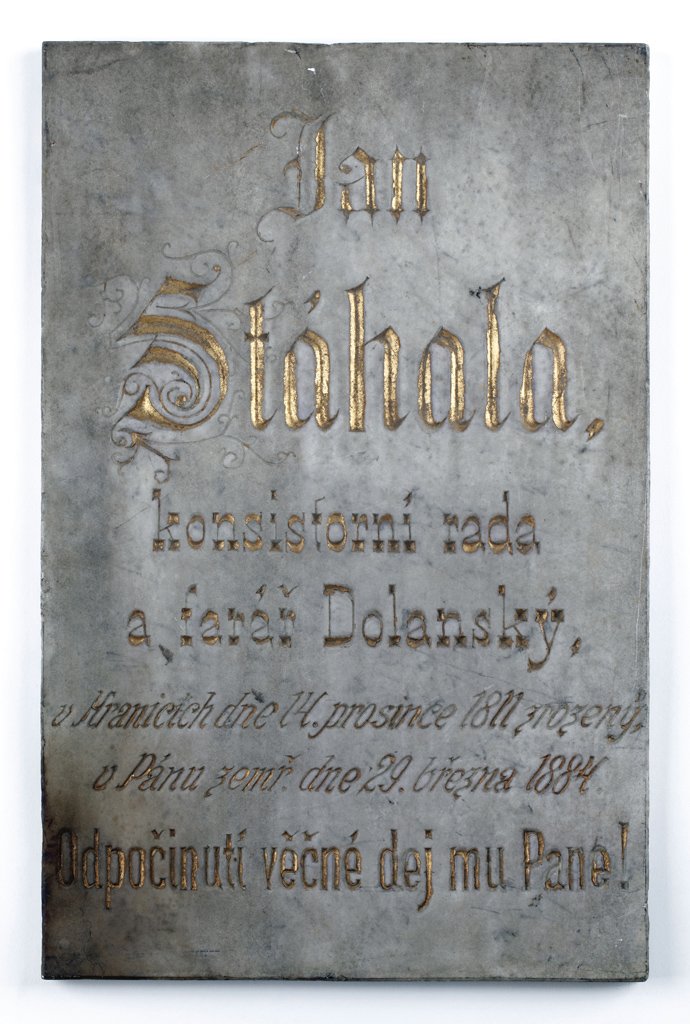 Jan
Stáhala,
konsistorní rada
a farář Dolanský,
v Hranicích dne 14. prosince 1811 zrozený,
v Pánu zemř. dne 29. března 1884.
Odpočinutí věčné dej mu Pane!